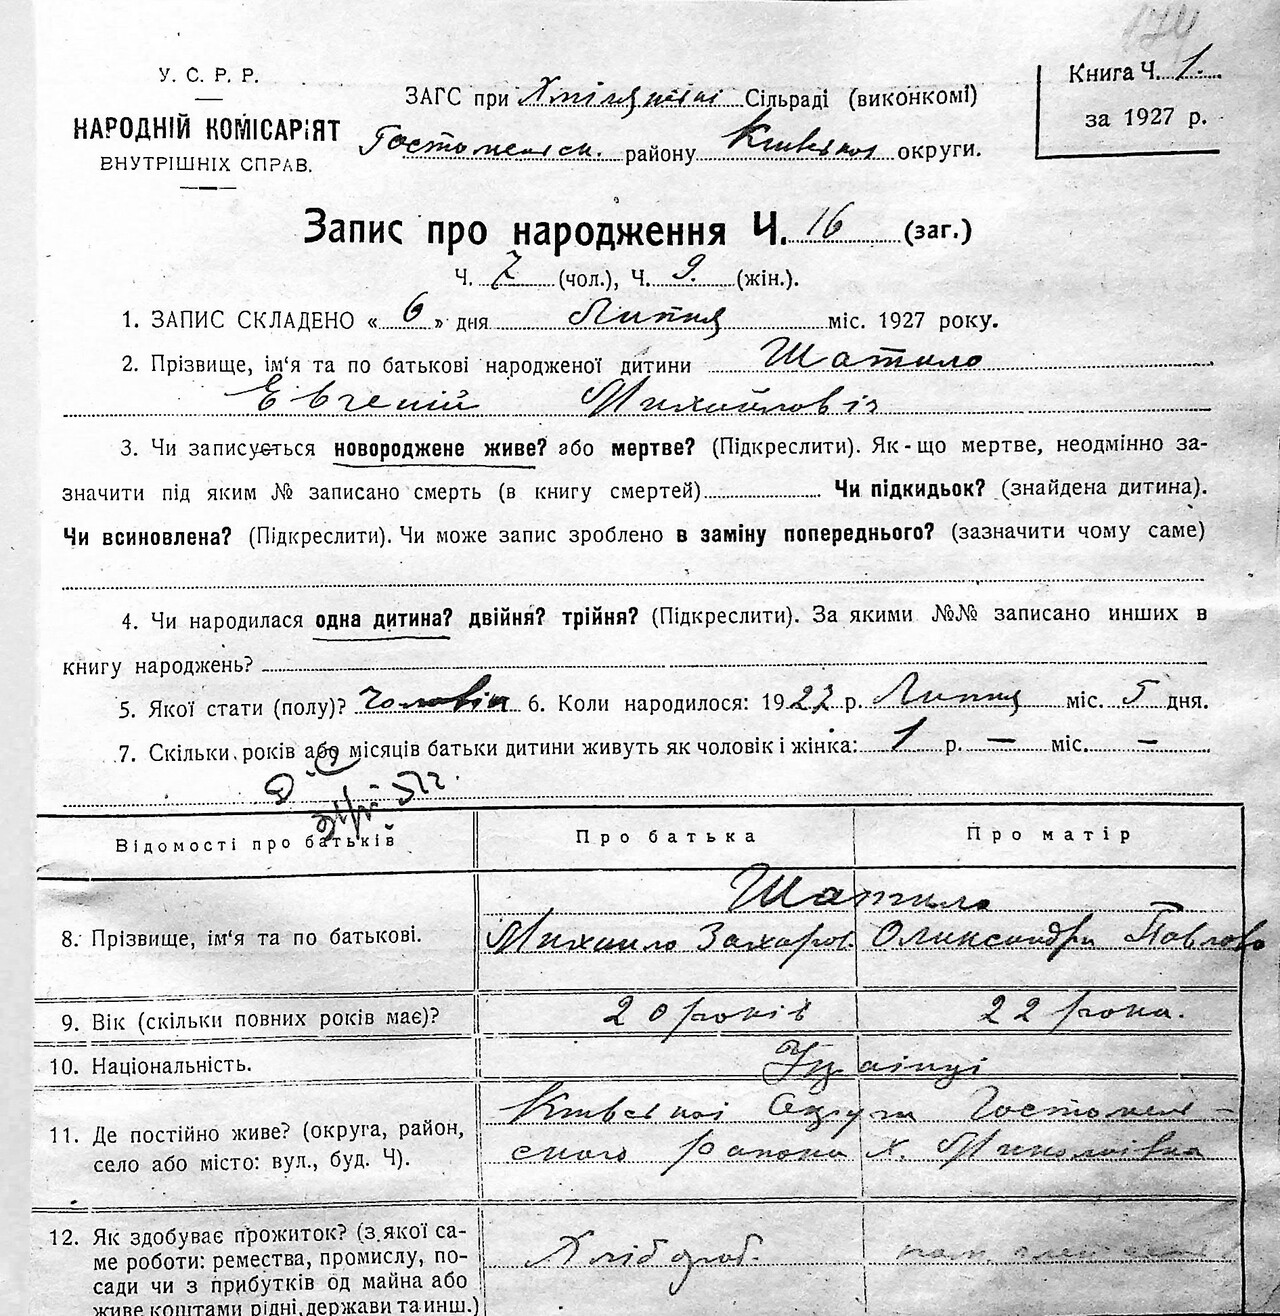 174
У. С. Р. Р.
НАРОДНІЙ КОМІСАРІЯТ
ВНУТРІШНІХ СПРАВ.
ЗАГС при Сільраді (виконкомі)
Гостомельск. району Київської округи.
Книга Ч. 1.
за 1927 р.
Запис про народження Ч. 16 (заг.)
Ч. 7 (чол.), Ч. 9. (жін.).
1. ЗАПИС СКЛАДЕНО « 6 » дня Липня міс. 1927 року.
2. Прізвище, ім'я та по батькові народженої дитини Шатило
Евгеній Михайловіч
3. Чи записується новороджене живе? або мертве? (Підкреслити). Як-що мертве, неодмінно за-
значити під яким № записано смерть (в книгу смертей) Чи підкидьок? (знайдена дитина).
Чи всиновлена? (Підкреслити). Чи може запис зроблено в заміну попереднього? (зазначити чому саме)
4. Чи народилася одна дитина? двійня? трійня? (Підкреслити). За якими №№ записано инших в
книгу народжень?
5. Якої стати (полу)? Чоловіч 6. Коли народилося: 1927 р. Липня міс. 5 дня.
7. Скільки років або місяців батьки дитини живуть як чоловік і жінка: 1 р. — міс. —
Відомості про батьків
Про батька
Про матір
8. Прізвище, ім'я та по батькові.
Шатило
Михаило Захаров. Олександра Павлово
9. Вік (скільки повних років має)?
20 років
22 рока.
10. Національність.
Украінці
11. Де постійно живе? (округа, район,
село або місто: вул., буд. Ч).
Київськоі Округи Гостомель-
ского района х. Миколаівка
12. Як здобуває прожиток? (з якої са-
ме роботи: ремества, промислу, по-
сади чи з прибутків од майна або
живе коштами рідні, держави та инш.)
Хлібороб.